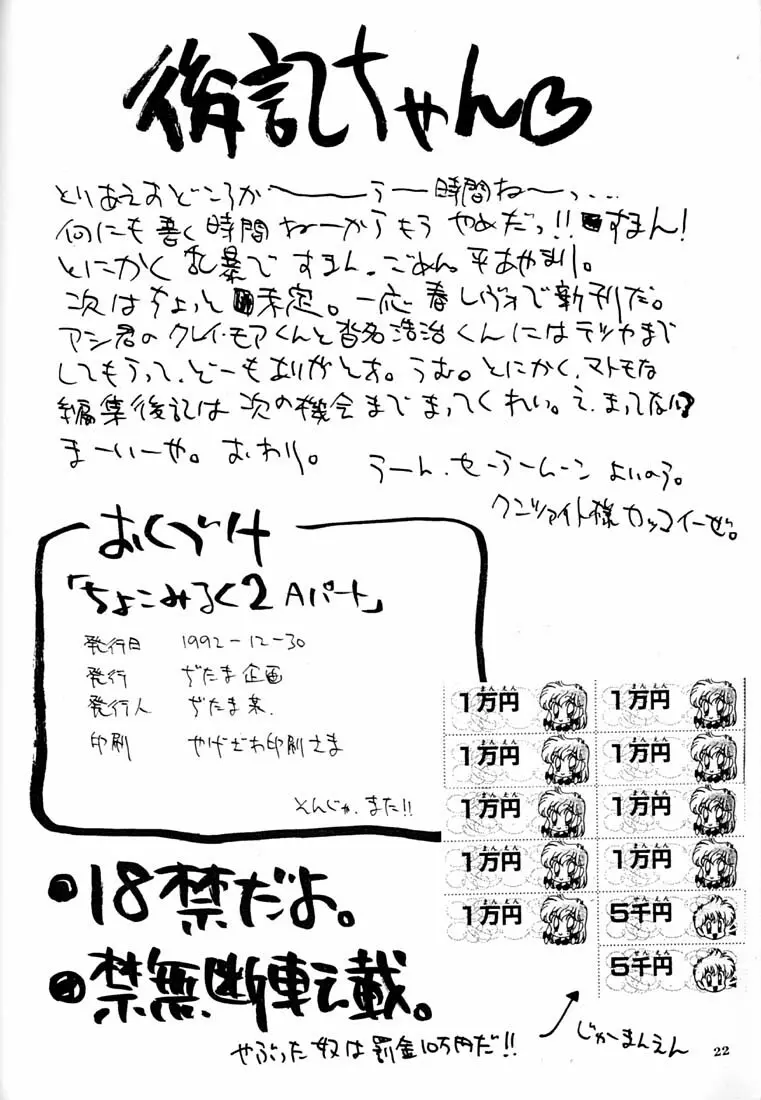 後記ちゃん♡
とりあえおどころか〜〜〜うー時間ねーっ...
何にも書く時間ねーからもうやめだっ!!すまん!
とにかく乱暴ですまん、ごめん。平あやまり。
次はちょっと未定。一応春レヴォで新刊だ。
アシ君のクレイ・モアくんと沓名浩治くんにはテツヤまで
してもらって、どーもありがとお。うむ。とにかく、マトモな
編集後記は次の機会までまってくれい。え、まってない?
まーいーや。おわり。
うーん、セーラームーンよいのう。
クンツァイト様カッコイーぜ。
おくづけ
「ちょこみるく2 Aパート」
発行日 1992-12-30
発行 ぢたま企画
発行人 ぢたま某.
印刷 やげざわ印刷さま
そんじゃ、また!!
1万円 1万円
1万円 1万円
1万円 1万円
1万円 1万円
1万円 5千円
5千円
●18禁だよ。
●禁無断転載。
やぶった奴は罰金10万円だ!!
じゅーまんえん
22